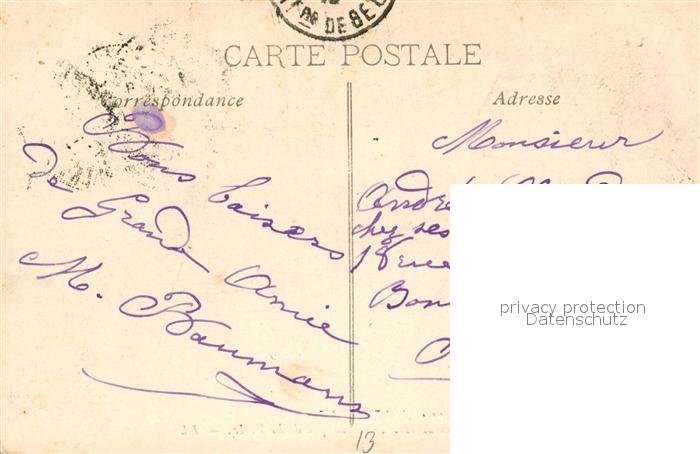 DE BE
CARTE POSTALE
Correspondance
Adresse
Bons baisers
De Grande Amie
M. Baumans
Monsieur
André
chez ses
18 rue
Bon
privacy protection
Datenschutz
13